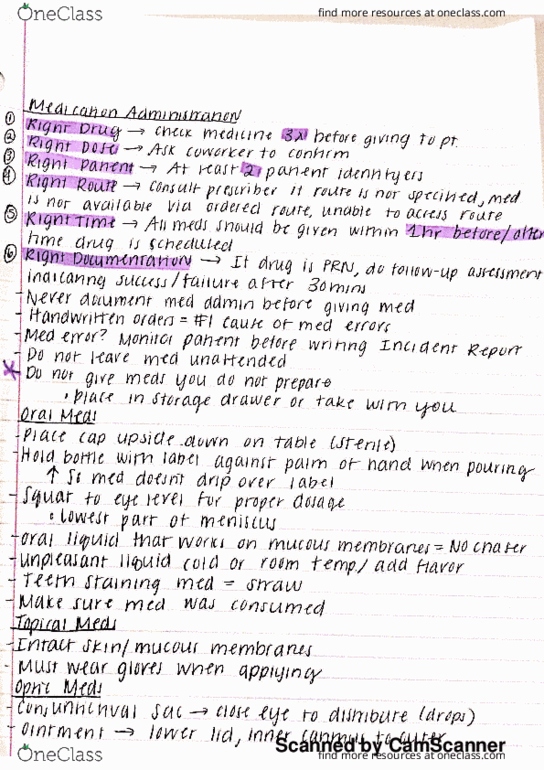 OneClass
find more resources at oneclass.com
Medication Administration
① Right Drug → check medicine 3x before giving to pt.
② Right Dose → Ask coworker to confirm
③ Right Patient → At least 2 patient identifyers
④ Right Route → Consult prescriber if route is not specified, med
is not available via ordered route, unable to access route
⑤ Right Time → All meds should be given within 1hr before/after
time drug is scheduled
⑥ Right Documentation → If drug is PRN, do follow-up assessment
indicating success/failure after 30mins
- Never document med admin before giving med
- Handwritten orders = #1 cause of med errors
- Med error? Monitor patient before writing Incident Report
- Do not leave med unattended
* Do not give meds you do not prepare
• Place in storage drawer or take with you
Oral Meds
- Place cap upside down on table (sterile)
- Hold bottle with label against palm of hand when pouring
↑ So med doesnt drip over label
- Squat to eye level for proper dosage
• lowest part of meniscus
- Oral liquid that works on mucous membranes = No chaser
- Unpleasant liquid cold or room temp/ add flavor
- Teeth staining med = straw
- Make sure med was consumed
Topical Meds
- Intact skin/mucous membranes
- Must wear gloves when applying
Optic Meds
- Conjunctival sac → close eye to distribute (drops)
- Ointment → lower lid, inner canthus to outer
Scanned by CamScanner
OneClass
find more resources at oneclass.com